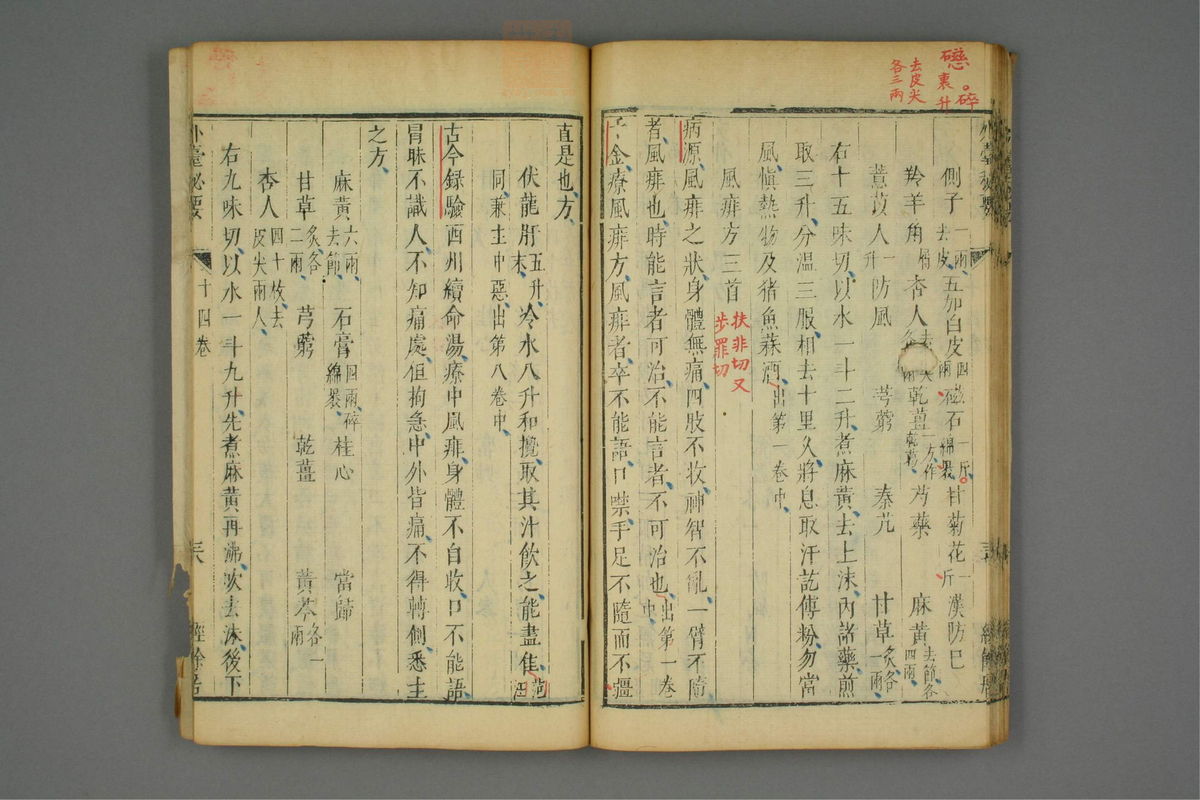 戀 碎
裹 升
去皮尖
各三兩
側子一兩去皮 五加白皮四兩 磁石一斤綿裹 甘菊花一斤 漢防巳
羚羊角屑 杏人 乾薑一方作乾葛 芍藥 麻黃去節各四兩
薏苡人一升 防風 芎藭 秦艽 甘草炙各一兩
右十五味切以水一斗二升煮麻黃去上沫內諸藥煎
取三升分溫三服相去十里久將息取汗訖傅粉勿當
風愼熱物及猪魚蒜酒出第一卷中
風痱方三首
扶非切又
步罪切
病源風痱之狀身體無痛四肢不收神智不亂一臂不隨
者風痱也時能言者可治不能言者不可治也出第一卷中
千金療風痱方風痱者卒不能語口噤手足不隨而不疆
直是也方
伏龍肝五升末 冷水八升和攪取其汁飲之能盡佳范汪
同兼主中惡出第八卷中
古今録驗西州續命湯療中風痱身體不自收口不能語
冒昧不識人不知痛處但拘急中外皆痛不得轉側悉主
之方
麻黃六兩去節 石膏四兩碎綿裹 桂心 當歸
甘草炙各二兩 芎藭 乾薑 黃芩各一兩
杏人四十枚去皮尖兩人
右九味切以水一斗九升先煮麻黃再沸吹去沫後下
外臺祕要 十四卷 三六 經餘居